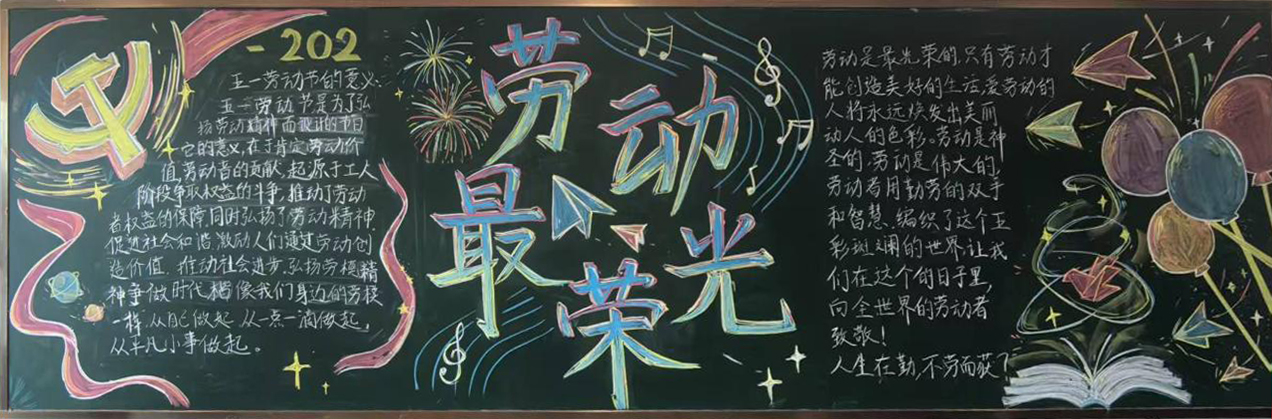 -202
五一劳动节的意义:
五一劳动节是为了弘
扬劳动精神而设计的节日
它的意义,在于肯定劳动价
值,劳动者的贡献,起源于工人
阶段争取权益的斗争,推动了劳动
者权益的保障同时弘扬了劳动精神
促进社会和谐,激励人们通过劳动创
造价值,推动社会进步,弘扬劳模精
神争做时代楷像我们身边的劳模
一样,从自己做起,从一点一滴做起,
从平凡小事做起。
劳动
最光
荣
劳动是最光荣的,只有劳动才
能创造美好的生活,爱劳动的
人将永远焕发出美丽
动人的色彩。劳动是神
圣的,劳动是伟大的,
劳动者用勤劳的双手
和智慧,编织了这个五
彩斑斓的世界,让我
们在这个的日子里,
向全世界的劳动者
致敬!
人生在勤,不劳而获?